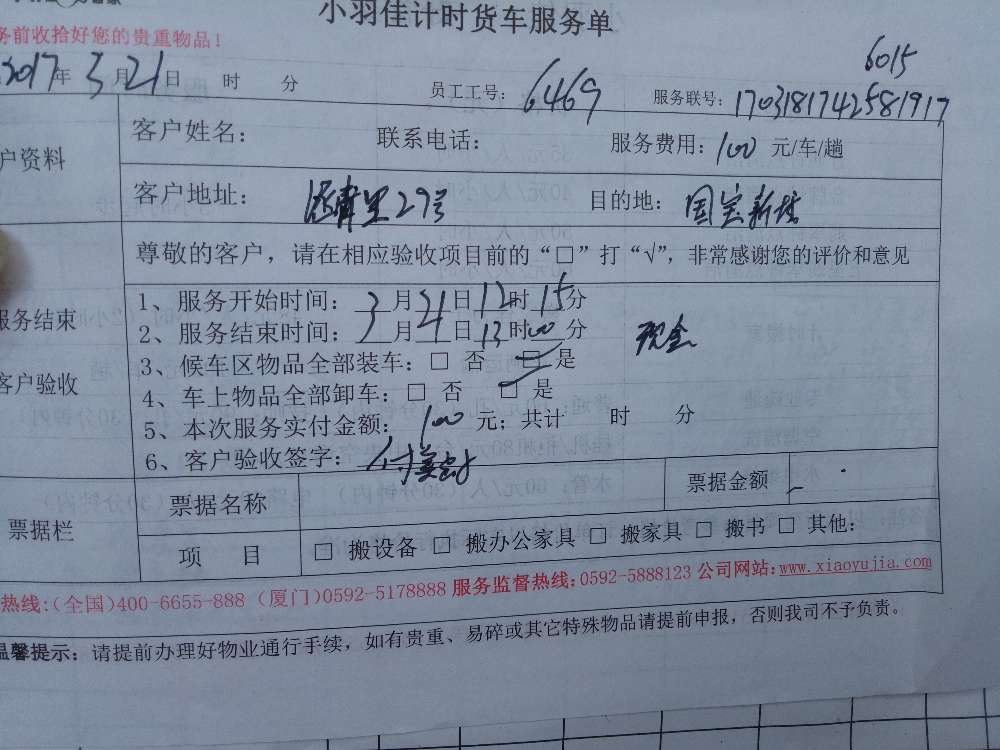 小羽佳计时货车服务单
务前收拾好您的贵重物品！
6015
2017年3月21日 时 分 员工工号：6469 服务联号：1703181742581917
户资料 客户姓名： 联系电话： 服务费用：100 元/车/趟
客户地址： 里29号 目的地：国宝新城
尊敬的客户，请在相应验收项目前的“□”打“√”，非常感谢您的评价和意见
服务结束
客户验收
1、服务开始时间：3月21日12时15分
2、服务结束时间：3月21日13时00分 现金
3、候车区物品全部装车：□ 否 ☑ 是
4、车上物品全部卸车：□ 否 ☑ 是
5、本次服务实付金额：100元；共计 时 分
6、客户验收签字：付
票据栏 票据名称 票据金额
项 目 □ 搬设备 □ 搬办公家具 □ 搬家具 □ 搬书 □ 其他：
热线：（全国）400-6655-888 （厦门）0592-5178888 服务监督热线：0592-5888123 公司网站：www.xiaoyujia.com
温馨提示：请提前办理好物业通行手续，如有贵重、易碎或其它特殊物品请提前申报，否则我司不予负责。